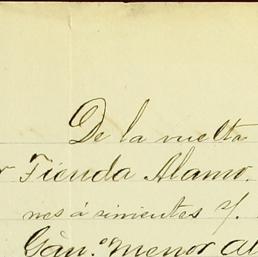 De la vuelta
Tienda Alamo.
nes á sirvientes s/.
Gan.º menor al